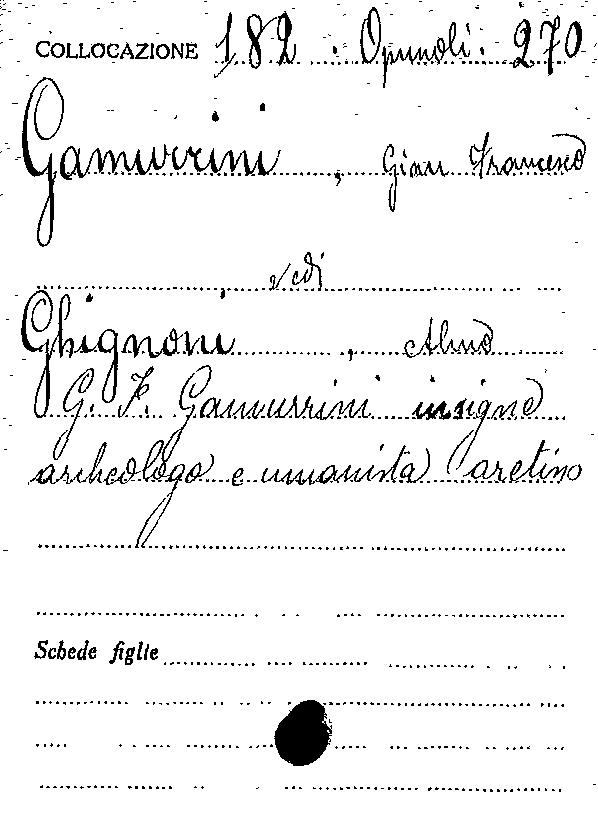 COLLOCAZIONE 182 . Opuscoli . 270
Gamurrini , Gian Francesco
vedi
Ghignoni , Alino
G. F. Gamurrini insigne
archeologo e umanista aretino
Schede figlie